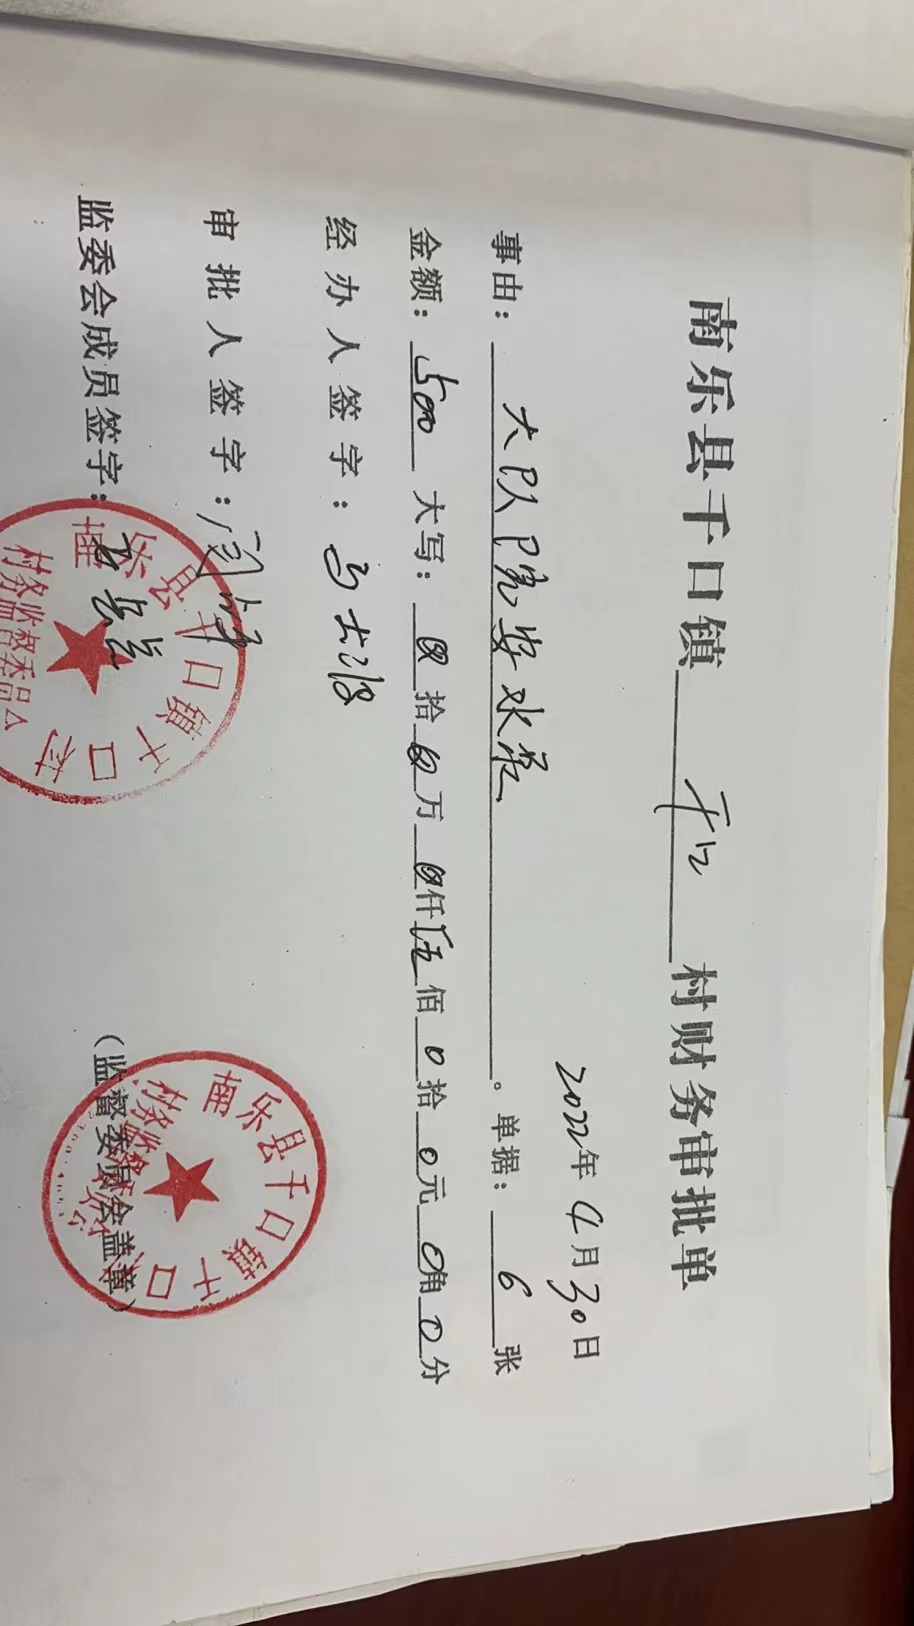 南乐县千口镇 千口 村财务审批单
2022年4月30日
事由：大队院安水泵。单据：6张
金额：500 大写：0拾0万0仟伍佰0拾0元0角0分
经办人签字：
审批人签字：
监委会成员签字：
（监督委员会盖章）
南乐县千口镇千口村
村务监督委员会
南乐县千口镇千口
村务监督委员会